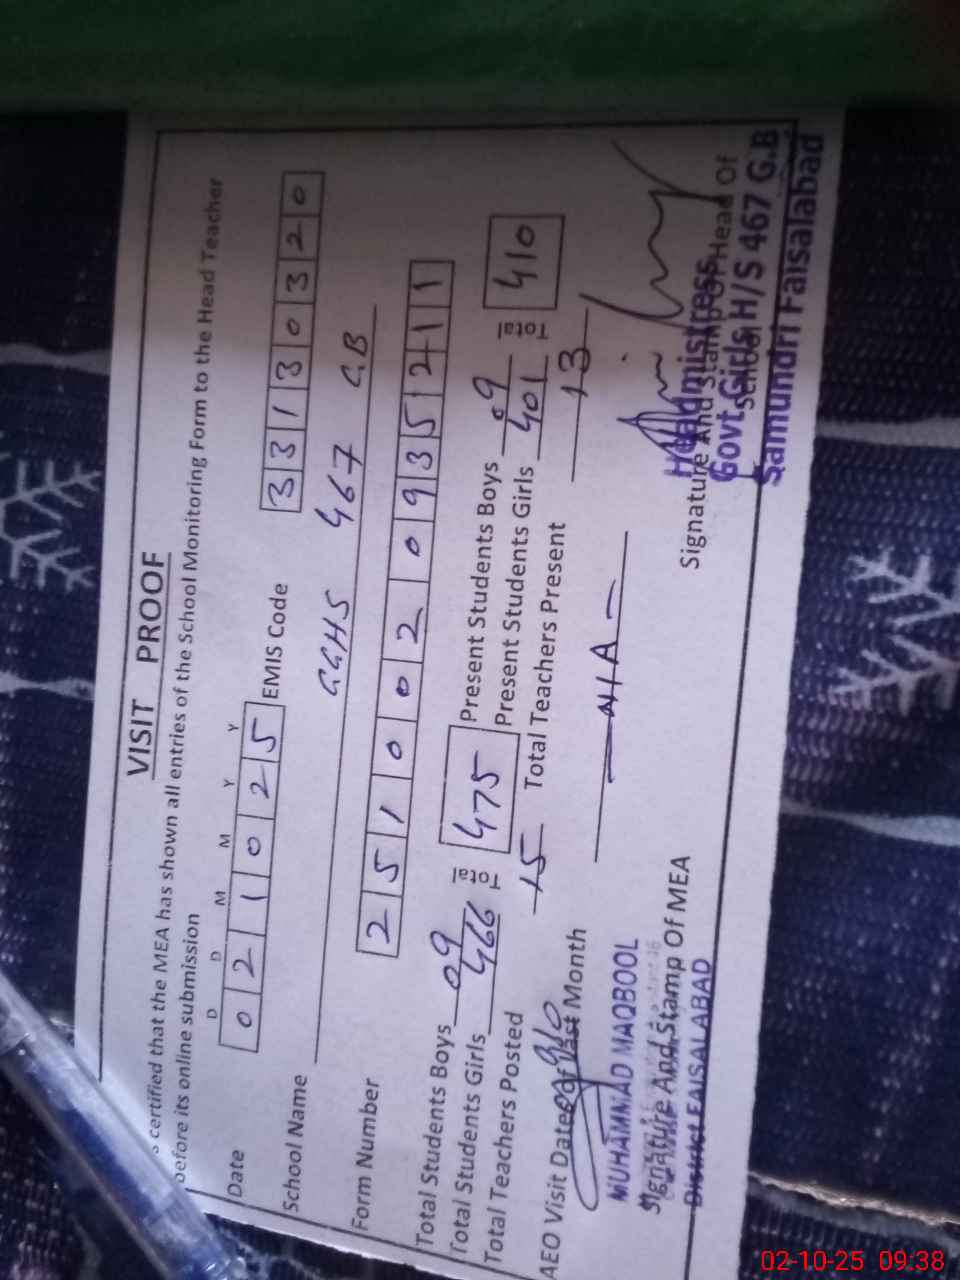 VISIT PROOF
s certified that the MEA has shown all entries of the School Monitoring Form to the Head Teacher
before its online submission
D D M M Y Y
Date 0 2 1 0 2 5 EMIS Code 3 3 1 3 0 3 2 0
School Name GGHS 467 G.B
Form Number 2 5 1 0 0 2 0 9 3 5 2 1 1
Total Students Boys 09 Total 475 Present Students Boys 09 Total 410
Total Students Girls 466 Present Students Girls 401
Total Teachers Posted 15 Total Teachers Present 13
AEO Visit Date of Last Month N/A
MUHAMMAD MAQBOOL
Signature And Stamp Of MEA
District FAISALABAD
Signature And Stamp Of Head Of
School
Headmistress
Govt. Girls H/S 467 G.B
Samundri Faisalabad
02-10-25 09:38